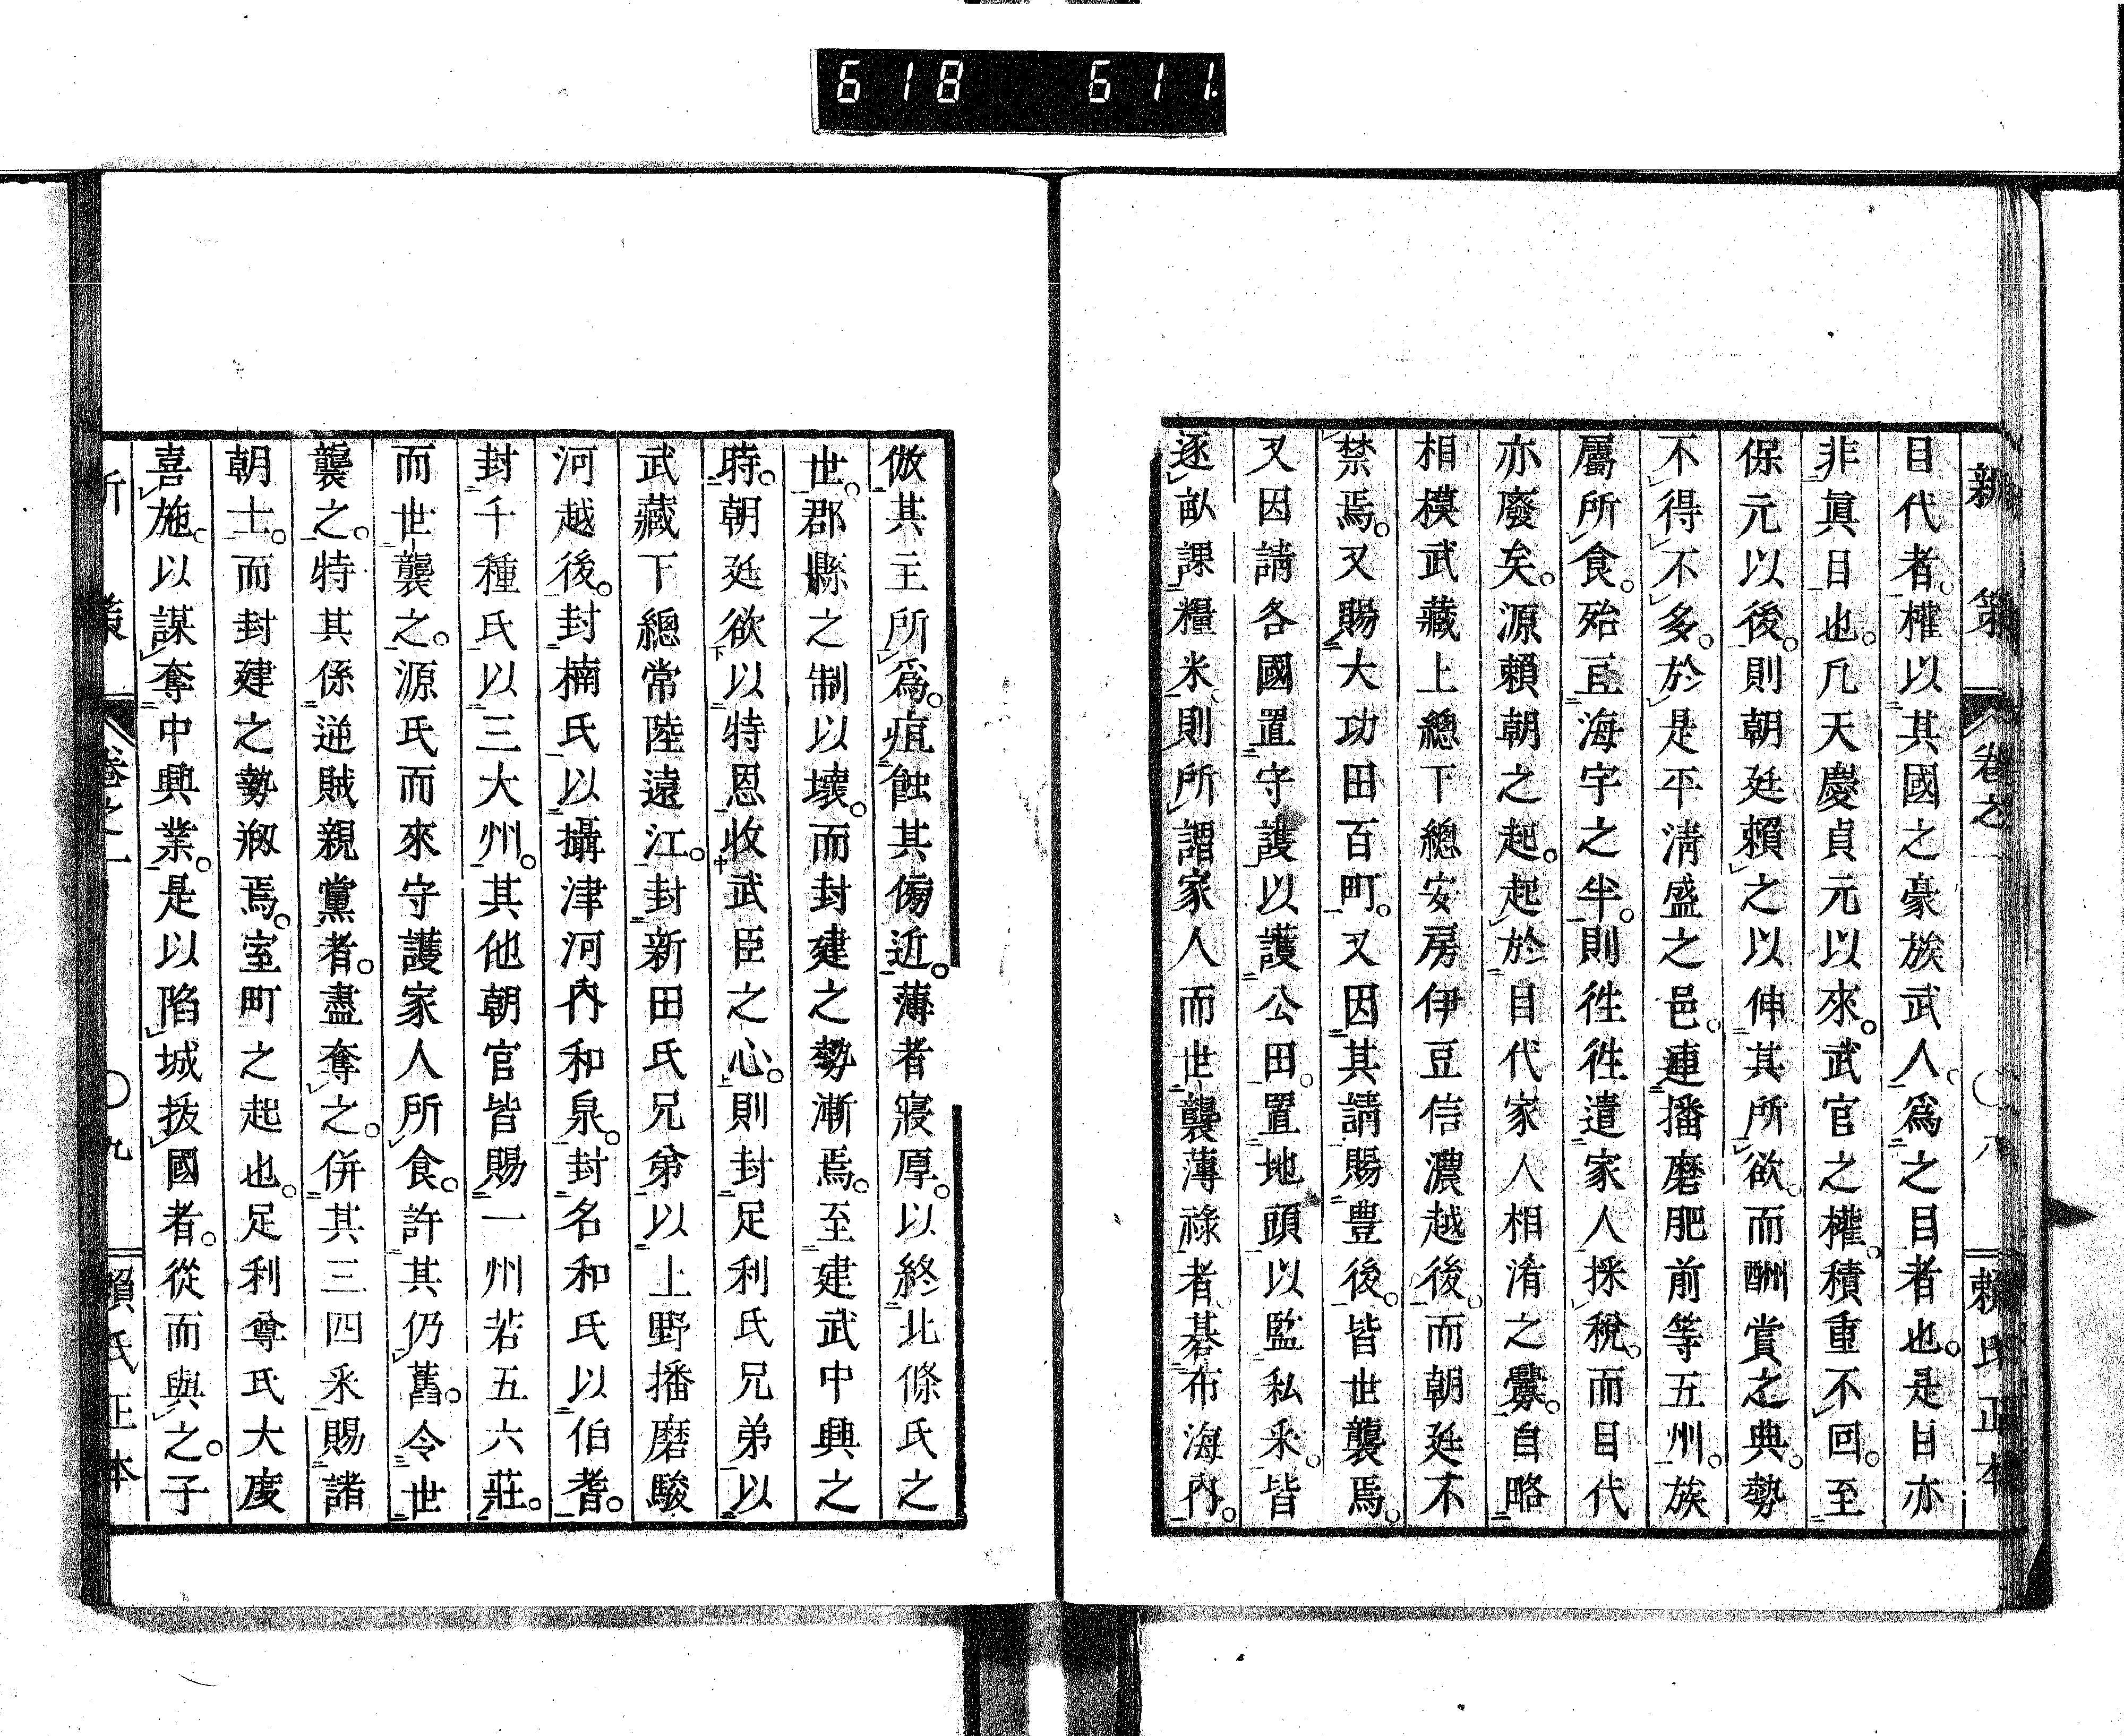 618 611
新策 卷之一 〇八 賴氏正本
目代者。權以其國之豪族武人。爲之目者也。是目亦
非眞目也。凡天慶貞元以來。武官之權。積重不回。至
保元以後。則朝廷賴之以伸其所欲。而酬賞之典。勢
不得不多。於是平淸盛之邑。連播磨肥前等五州。族
屬所食。殆亘海宇之半。則徃徃遣家人採稅。而目代
亦廢矣。源賴朝之起。起於目代家人相淆之釁。自略
相模武藏上總下總安房伊豆信濃越後。而朝廷不
禁焉。又賜大功田百町。又因其請賜豊後。皆世襲焉。
又因請各國置守護以護公田。置地頭以監私釆。皆
逐畝課糧米。則所謂家人而世襲薄祿者。碁布海內。
倣其主所爲。疽蝕其傍近。薄者寢厚。以終北條氏之
世。郡縣之制以壞。而封建之勢漸焉。至建武中興之
時。朝廷欲以特恩收武臣之心。則封足利氏兄弟以
武藏下總常陸遠江。封新田氏兄弟以上野播磨駿
河越後。封楠氏以攝津河內和泉。封名和氏以伯耆。
封千種氏以三大州。其他朝官皆賜一州若五六莊。
而世襲之。源氏而來守護家人所食。許其仍舊。令世
襲之。特其係逆賊親黨者。盡奪之。併其三四釆賜諸
朝士。而封建之勢剏焉。室町之起也。足利尊氏大度
喜施。以謀奪中興業。是以陷城拔國者。從而與之。子
新策 卷之一 〇九 賴氏正本